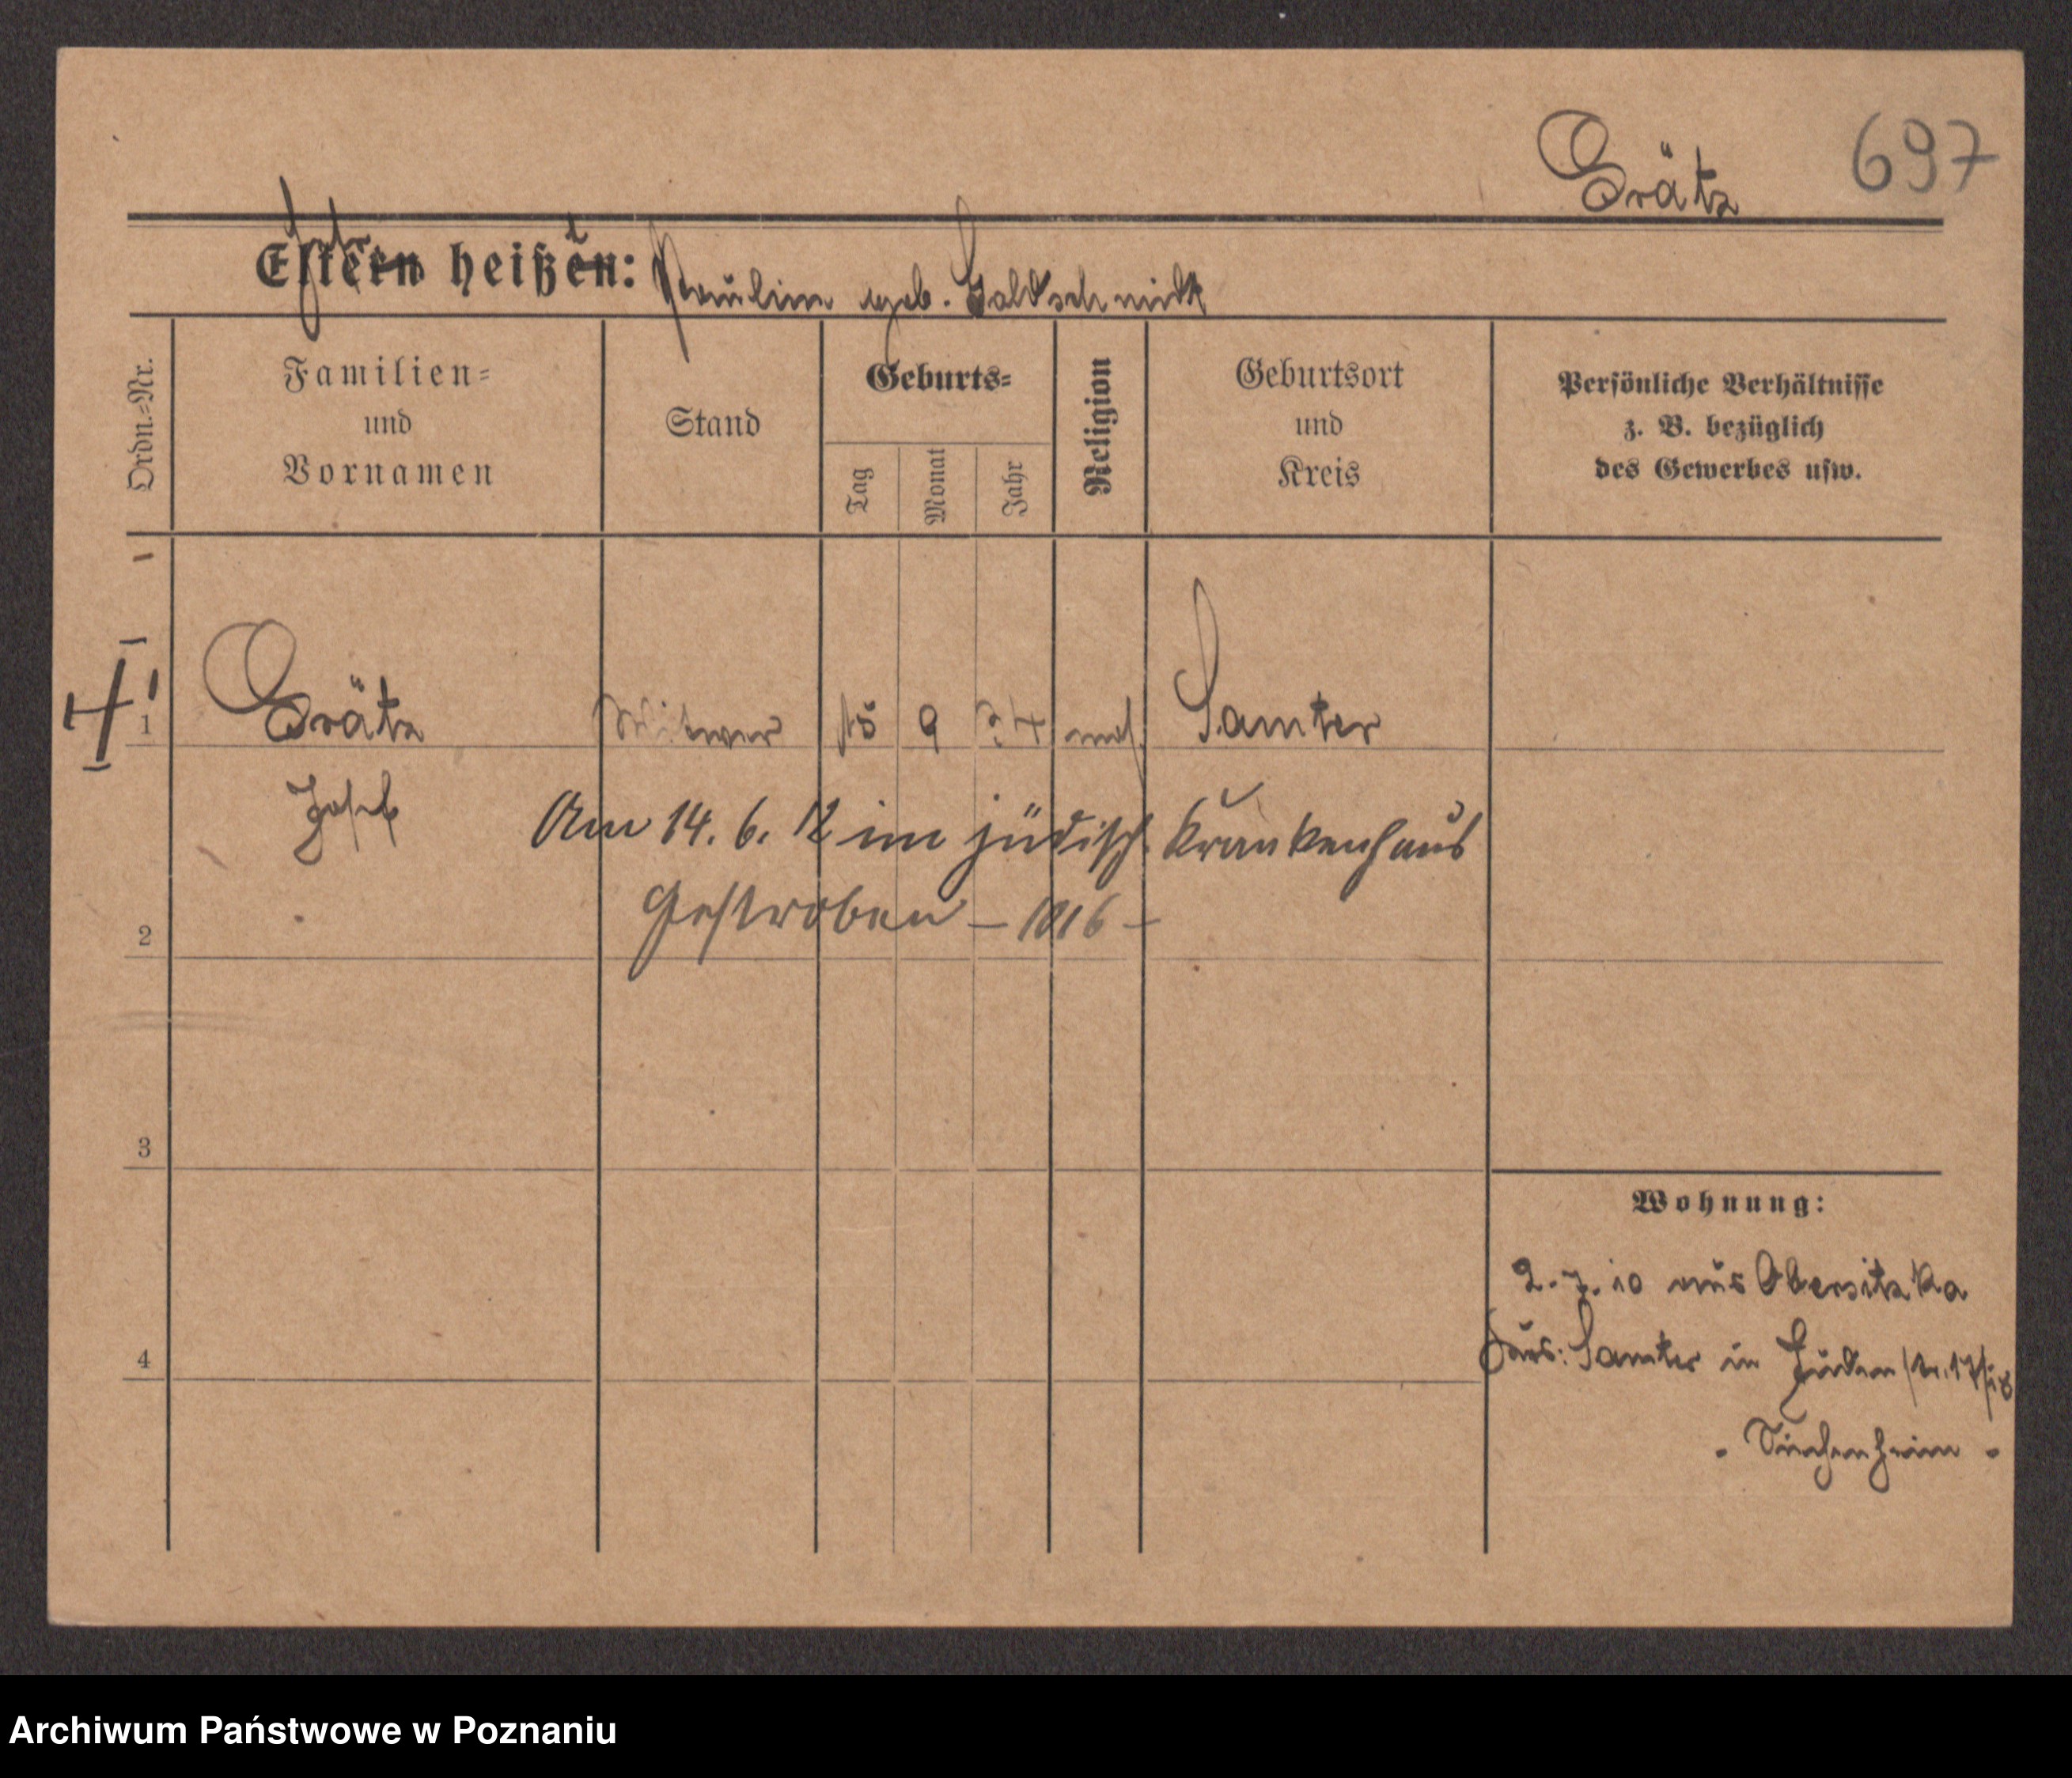 Grätz 697
Eltern heißen: Paulina geb. Goldschmidt
Ordn.=Nr.
Familien=
und
Vornamen
Stand
Geburts=
Tag
Monat
Jahr
Religion
Geburtsort
und
Kreis
Persönliche Verhältnisse
z. B. bezüglich
des Gewerbes usw.
1 Grätz Witwer 15 9 34 mos. Samter
Josef
Am 14. 6. 12 im jüdisch. Krankenhaus
Gestorben – 1816 –
2
3
Wohnung:
2. 7. 10 aus Obersitzko
Kreis: Samter in Judenstr. 17/18
4
- Siechenheim -
Archiwum Państwowe w Poznaniu